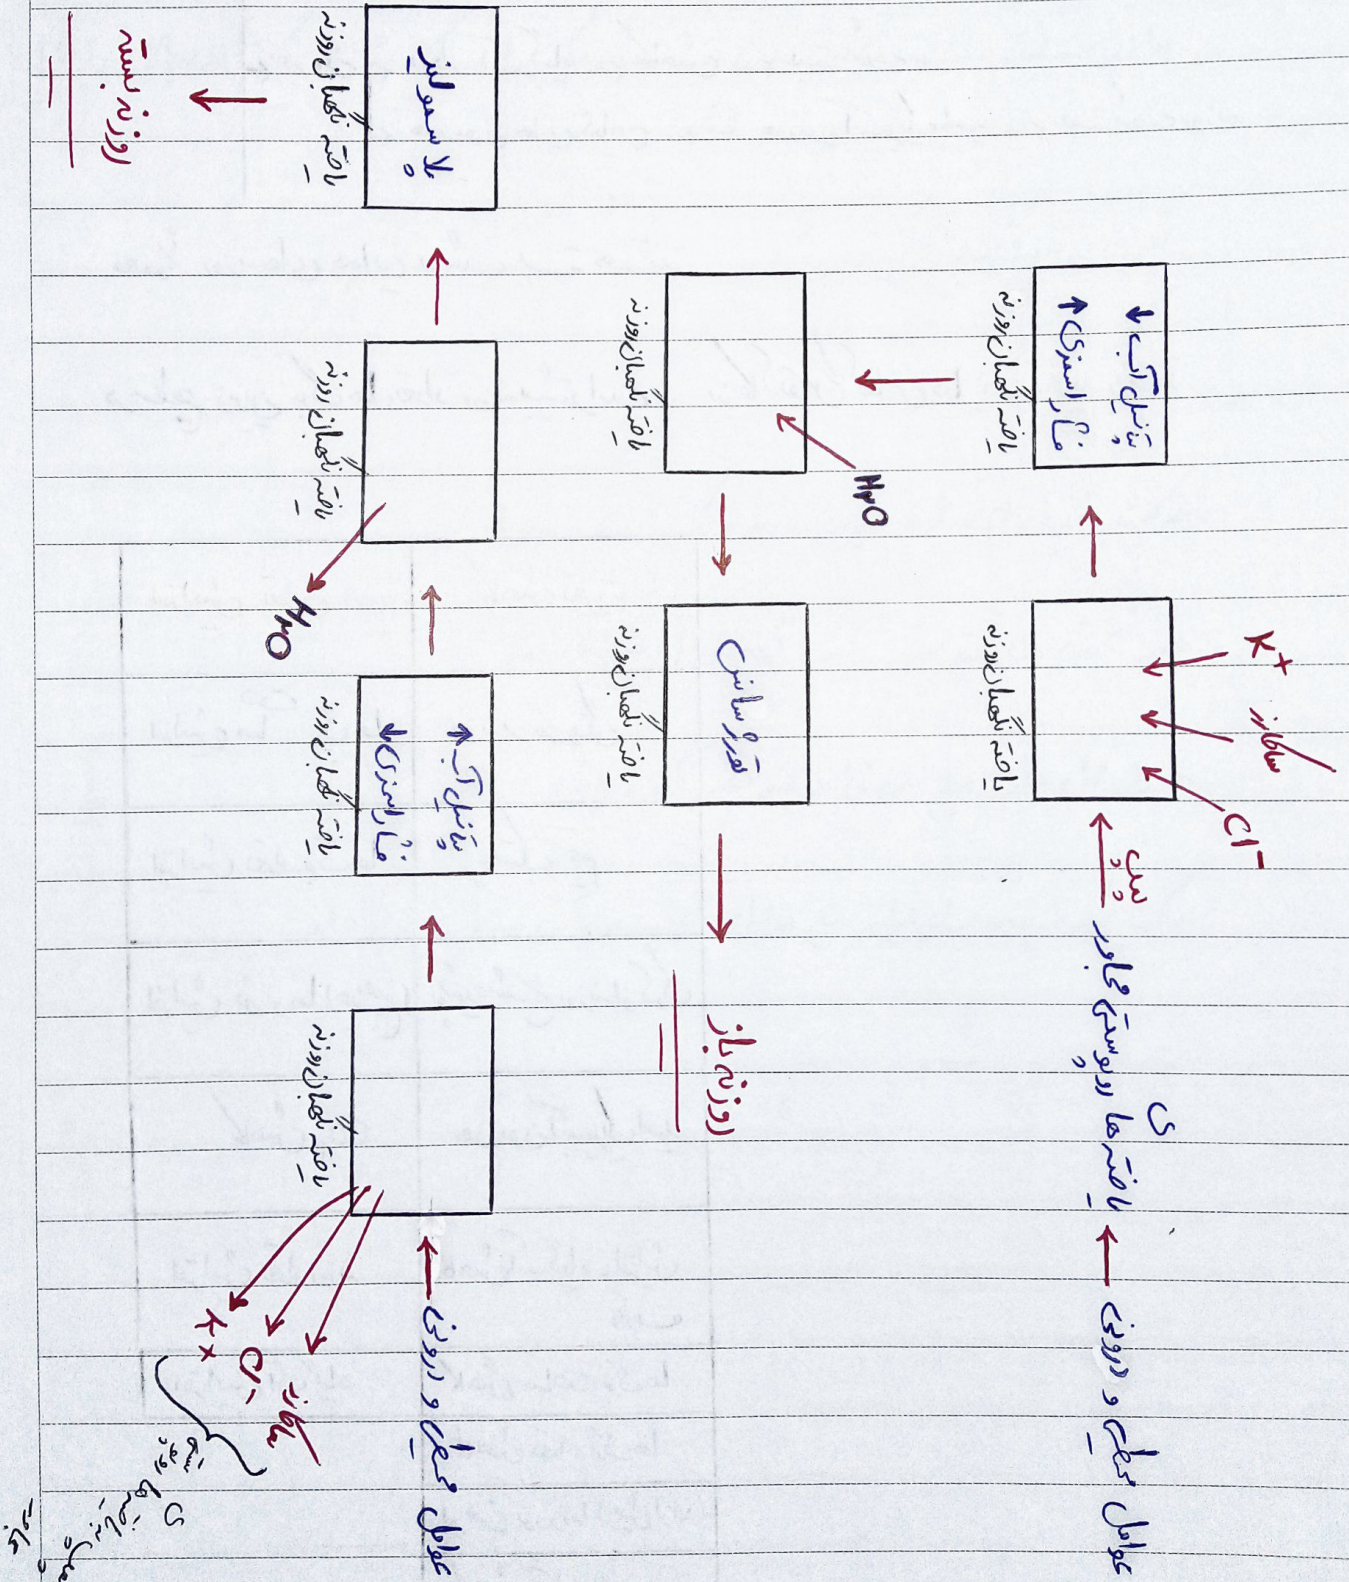 عوامل محیطی و درونی
یاخته‌های روپوستی مجاور
پمپ
K+
ساکارز
Cl-
یاختهٔ نگهبان روزنه
پتانسیل آب ↓
فشار اسمزی ↑
یاختهٔ نگهبان روزنه
H₂O
یاختهٔ نگهبان روزنه
تورژسانس
یاختهٔ نگهبان روزنه
روزنه باز
عوامل محیطی و درونی
ساکارز
Cl-
K+
یاختهٔ نگهبان روزنه
پتانسیل آب ↑
فشار اسمزی ↓
یاختهٔ نگهبان روزنه
H₂O
یاختهٔ نگهبان روزنه
پلاسمولیز
یاختهٔ نگهبان روزنه
روزنه بسته